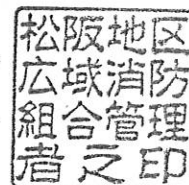 松阪地区
広域消防
組合管理
者之印